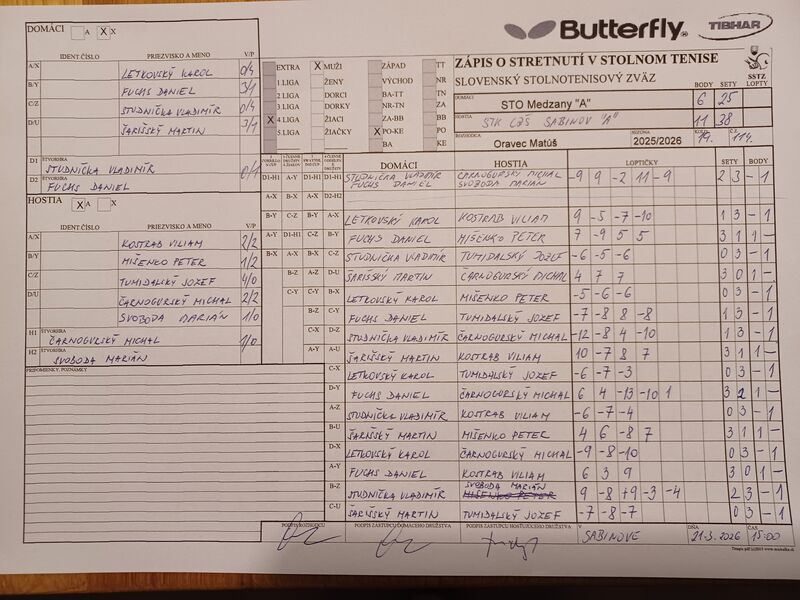 DOMÁCI A X X
Butterfly
TIBHAR
IDENT.ČÍSLO PRIEZVISKO A MENO V/P
A/X LETKOVSKÝ KAROL 0/4
B/Y FUCHS DANIEL 3/1
C/Z STUDNIČKA VLADIMÍR 0/4
D/U ŠARIŠSKÝ MARTIN 3/1
ŠTVORHRA
D1 STUDNIČKA VLADIMÍR 0/1
D2 FUCHS DANIEL
HOSTIA X A X
IDENT.ČÍSLO PRIEZVISKO A MENO V/P
A/X KOSTRAB VILIAM 2/2
B/Y MIŠENKO PETER 1/2
C/Z TUMIDALSKÝ JOZEF 4/0
D/U ČARNOGURSKÝ MICHAL 2/2
SVOBODA MARIÁN 1/0
ŠTVORHRA
H1 ČARNOGURSKÝ MICHAL 1/0
H2 SVOBODA MARIÁN
PRIPOMIENKY, POZNÁMKY
EXTRA X MUŽI ZÁPAD TT
1 LIGA ŽENY VÝCHOD NR
2 LIGA DORCI BA-TT TN
3 LIGA DORKY NR-TN ZA
X 4 LIGA ŽIACI ZA-BB BB
5 LIGA ŽIAČKY X PO-KE PO
BA KE
ZÁPIS O STRETNUTÍ V STOLNOM TENISE
SLOVENSKÝ STOLNOTENISOVÝ ZVÄZ
SSTZ
BODY SETY LOPTY
DOMÁCI STO Medzany "A" 6 25
HOSTIA STK CZŠ SABINOV "A" 11 38
ROZHODCA Oravec Matúš SEZÓNA 2025/2026 KOLO 19. Č.Z. 114.
DOMÁCI HOSTIA LOPTIČKY SETY BODY
D1-H1 A-Y B-X D1-H1 STUDNIČKA VLADIMÍR FUCHS DANIEL ČARNOGURSKÝ MICHAL SVOBODA MARIÁN -9 9 -2 11 -9 2 3 - 1
A-X B-X A-X D2-H2
B-Y C-Z B-Y A-X LETKOVSKÝ KAROL KOSTRAB VILIAM 9 -5 -7 -10 1 3 - 1
A-Y D1-H1 C-Z B-Y FUCHS DANIEL MIŠENKO PETER 7 -9 5 5 3 1 1 -
B-X A-X B-X C-Z STUDNIČKA VLADIMÍR TUMIDALSKÝ JOZEF -6 -5 -6 0 3 - 1
B-Z A-Z D-U ŠARIŠSKÝ MARTIN ČARNOGURSKÝ MICHAL 4 7 7 3 0 1 -
C-Y C-Y B-X LETKOVSKÝ KAROL MIŠENKO PETER -5 -6 -6 0 3 - 1
B-Z C-Y FUCHS DANIEL TUMIDALSKÝ JOZEF -7 -8 8 -8 1 3 - 1
C-X D-Z STUDNIČKA VLADIMÍR ČARNOGURSKÝ MICHAL -12 -8 4 -10 1 3 - 1
A-Y A-U ŠARIŠSKÝ MARTIN KOSTRAB VILIAM 10 -7 8 7 3 1 1 -
C-X LETKOVSKÝ KAROL TUMIDALSKÝ JOZEF -6 -7 -3 0 3 - 1
D-Y FUCHS DANIEL ČARNOGURSKÝ MICHAL 6 4 -13 -10 1 3 2 1 -
A-Z STUDNIČKA VLADIMÍR KOSTRAB VILIAM -6 -7 -4 0 3 - 1
B-U ŠARIŠSKÝ MARTIN MIŠENKO PETER 4 6 -8 7 3 1 1 -
D-X LETKOVSKÝ KAROL ČARNOGURSKÝ MICHAL -9 -8 -10 0 3 - 1
A-Y FUCHS DANIEL KOSTRAB VILIAM 6 3 9 3 0 1 -
SVOBODA MARIÁN
B-Z STUDNIČKA VLADIMÍR MIŠENKO PETER 9 -8 +9 -3 -4 2 3 - 1
C-U ŠARIŠSKÝ MARTIN TUMIDALSKÝ JOZEF -7 -8 -7 0 3 - 1
PODPIS ROZHODCU PODPIS ZÁSTUPCU DOMÁCEHO DRUŽSTVA PODPIS ZÁSTUPCU HOSŤUJÚCEHO DRUŽSTVA V SABINOVE DŇA 21.3.2026 ČAS 15:00